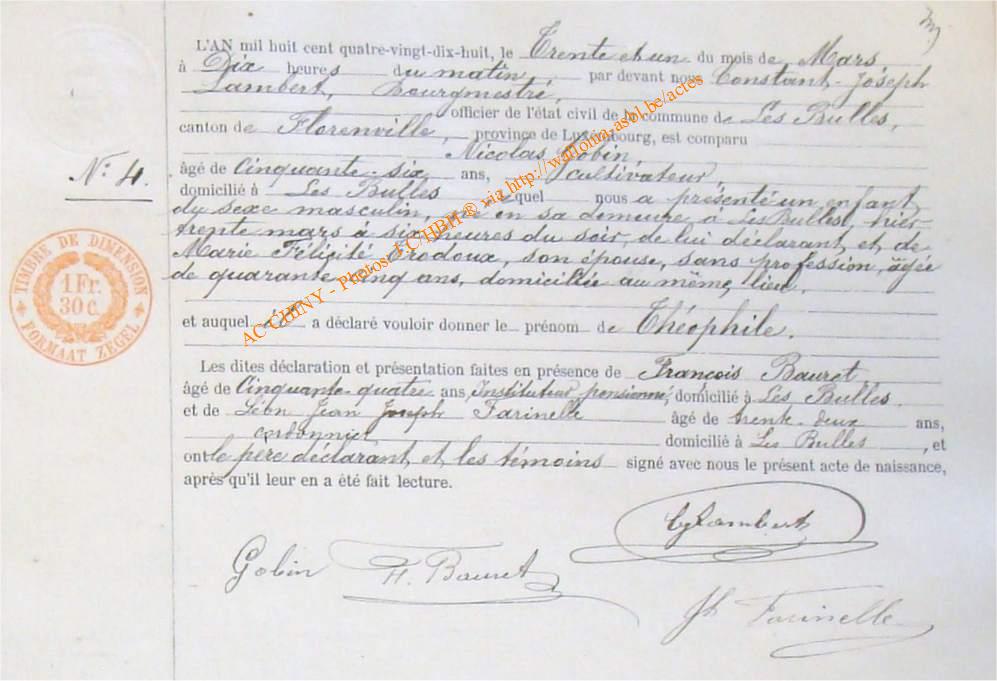 L'AN mil huit cent quatre-vingt-dix-huit, le Trente et un du mois de Mars
à Dix heures du matin, par devant nous Constant-Joseph
Lambert, Bourgmestre,
officier de l'état civil de la commune de Les Bulles,
canton de Florenville, province de Luxembourg, est comparu
Nicolas Gobin,
âgé de Cinquante-six ans, cultivateur,
domicilié à Les Bulles lequel nous a présenté un enfant
du sexe masculin, né en sa demeure à Les Bulles, hier
trente mars à six heures du soir, de lui déclarant et de
Marie Félicité Frodoux, son épouse, sans profession, âgée
de quarante-cinq ans, domiciliée au même lieu.
et auquel il a déclaré vouloir donner le prénom de Théophile.
Les dites déclaration et présentation faites en présence de François Bauret
âgé de Cinquante-quatre ans Instituteur pensionné, domicilié à Les Bulles
et de Léon Jean Joseph Farinelle âgé de trente-deux ans,
cordonnier domicilié à Les Bulles, et
ont le père déclarant et les témoins signé avec nous le présent acte de naissance,
après qu'il leur en a été fait lecture.
Lambert
Gobin F. Bauret
Jh Farinelle
N° 4.
TIMBRE DE DIMENSION
1 Fr.
30 c.
FORMAAT ZEGEL
AC CHINY - Photos: FCHBH ® via http://wallonia-asbl.be/actes